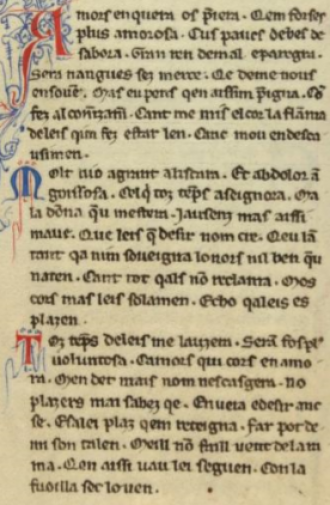 Amors enquera os preiera. Qem fosses
plus amorosa. Cus paucs bebes de
sabora. Gran ren demal eparegra.
Sera nangues fez merce. Qe deme nous
ensoue. Mas eu pens qen aissim
fez al Cant me mis el cor la flama
deleis qim fez estar len. Cane mou endesca
usimen.
Molt uio agrant alistara. Et abdolor
goissosa. Celq toz teps aseignora. Ora
la dona qu mestera. Jausens mas aissi
mauc. Que leis q desir nom cre. Qeu la
tant qa nim soueigna lonors nil ben qu
naten. Cant tot qals no reclama. Mos
cors mas leis solamen. Echo qaleis es
plazen.
Toz teps deleis me lauzera. Sera fospl
uoluntosa. Camors qui cors en amo
ra. Men det mais nom nescasgera. no
plazers mai sabez qe. Enueia edesir anc
se. Esalei plaz qem reteigna. Far pot de
mi son talen. Meill no fruill uent de la ra
ma. Qen aissi uau lei seguen. Con la
fuoilla sec lo uen.